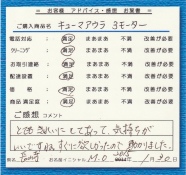 お客様 アドバイス・感想 お葉書
ご購入商品名 キューマアウラ 3モーター
電話対応 満足 まあまあ 不満 改善が必要
クリーニング 満足 まあまあ 不満 改善が必要
お取引連絡 満足 まあまあ 不満 改善が必要
配達設置 満足 まあまあ 不満 改善が必要
価格 満足 まあまあ 不満 改善が必要
商品満足度 満足 まあまあ 不満 改善が必要
ご感想 コメント
とてもきれいにしてあって、気持ちが
いいですね すぐに欲しかったので助かりました。
お客様イニシャル M.O